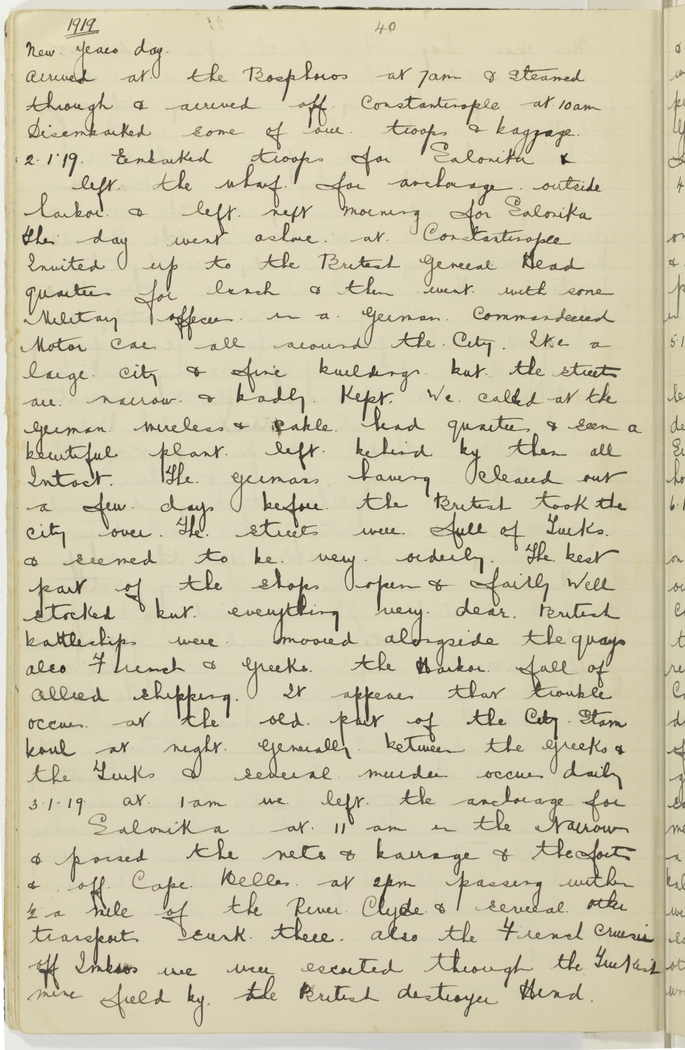 1919
40
New Years day.
Arrived at the Bosphoros at 7am & Steamed
through & arrived off Constantinople at 10am
Disembarked some of our troops & baggage.
2.1.19. Embarked troops for Salonika &
left the wharf for anchorage outside
harbor & left next morning for Salonika
this day went ashore at Constantinople
Invited up to the British General Head
quarters for lunch & then went with some
Military officers in a German Commandeered
Motor Car all around the City. Its a
large city & fine buildings but the streets
are narrow & badly Kept. We called at the
German wireless & cable head quarters & seen a
beautiful plant left behind by them all
Intact. The Germans having cleared out
a few days before the British took the
city over. The streets were full of Turks.
& seemed to be very orderly. The best
part of the shops open & fairly well
stocked but everything very dear. British
battleships were moored alongside the quays
also French & Greeks. the Harbor full of
Allied shipping. It appears that trouble
occurs at the old part of the City Stam
boul at night. Generally between the Greeks &
the Turks & several murders occur daily
3.1.19 at 1am we left the anchorage for
Salonika at 11 am in the Narrows
& passed the nets & barrage & the forts
& off Cape Helles at 2pm passing within
½ a mile of the River Clyde & several other
transports sunk there. also the French Cruiser
off Imbros we were escorted through the Turkish
mine field by the British destroyer Hind.